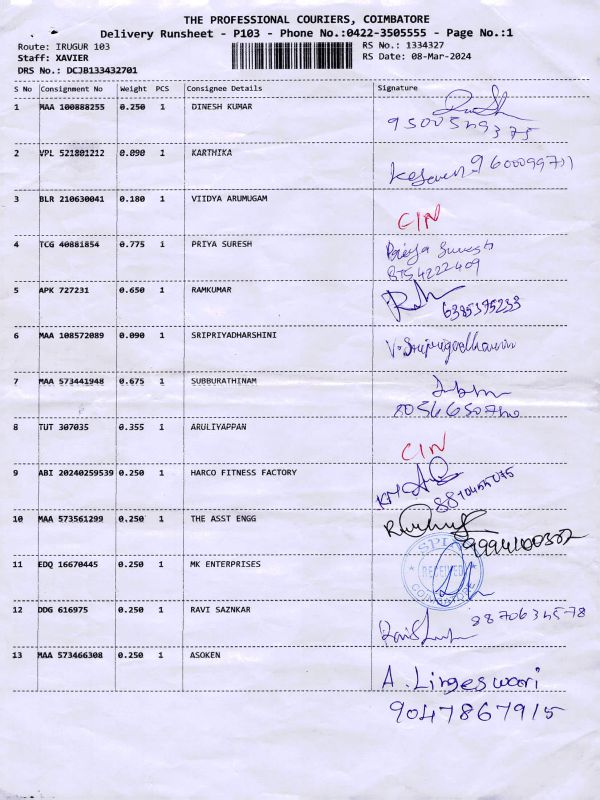 THE PROFESSIONAL COURIERS, COIMBATORE
Delivery Runsheet - P103 - Phone No.:0422-3505555 - Page No.:1
Route: IRUGUR 103 RS No.: 1334327
Staff: XAVIER RS Date: 08-Mar-2024
DRS No.: DCJB133432701
S No Consignment No Weight PCS Consignee Details Signature
1 MAA 100888255 0.250 1 DINESH KUMAR
9500549375
2 VPL 521801212 0.090 1 KARTHIKA
3 BLR 210630041 0.180 1 VIIDYA ARUMUGAM
CIN
4 TCG 40881854 0.775 1 PRIYA SURESH Priya Suresh
8754222409
5 APK 727231 0.650 1 RAMKUMAR
6385395233
6 MAA 108572089 0.090 1 SRIPRIYADHARSHINI V. Sripriyadharshini
7 MAA 573441948 0.675 1 SUBBURATHINAM
8 TUT 307035 0.355 1 ARULIYAPPAN
CIN
9 ABI 20240259539 0.250 1 HARCO FITNESS FACTORY
10 MAA 573561299 0.250 1 THE ASST ENGG
11 EDQ 16670445 0.250 1 MK ENTERPRISES RECEIVED
COIMBATORE
12 DDG 616975 0.250 1 RAVI SAZNKAR 8870634578
13 MAA 573466308 0.250 1 ASOKEN
A. Lingeswari
9047867915